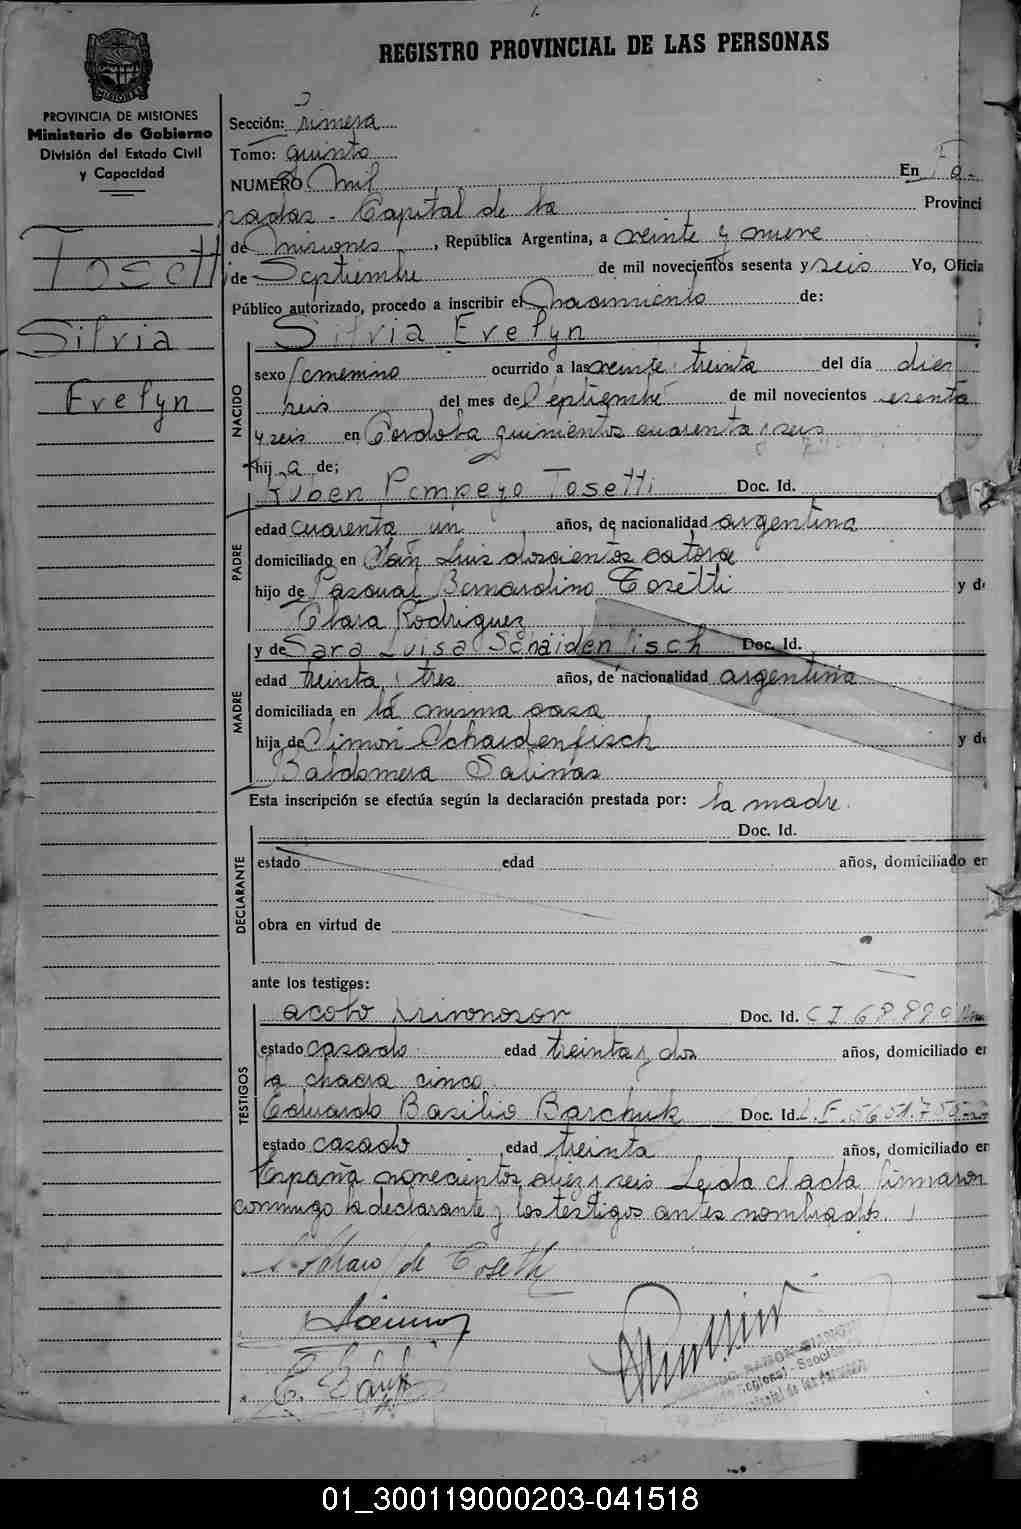 REGISTRO PROVINCIAL DE LAS PERSONAS
MISIONES
PROVINCIA DE MISIONES
Ministerio de Gobierno
División del Estado Civil
y Capacidad
Tosetti
Silvia
Evelyn
Sección: Primera
Tomo: quinto
NUMERO Mil En Po-
sadas - Capital de la Provinci
de Misiones, República Argentina, a veinte y nueve
de Septiembre de mil novecientos sesenta y seis Yo, Oficia
Público autorizado, procedo a inscribir el Nacimiento de:
Silvia Evelyn
NACIDO
sexo femenino ocurrido a las veinte y treinta del día diez
seis del mes de Septiembre de mil novecientos sesenta
y seis en Cordoba quinientos cuarenta y seis
hij a de;
Ruben Pompeyo Tosetti Doc. Id.
PADRE
edad cuarenta un años, de nacionalidad argentina
domiciliado en San Luis doscientos catorce
hijo de Pascual Bernardino Tosetti y de
Clara Rodriguez
y de Sara Luisa Schaidenfisch Doc. Id.
MADRE
edad treinta y tres años, de nacionalidad argentina
domiciliada en la misma casa
hija de Simon Schaidenfisch y de
Baldomera Salinas
Esta inscripción se efectúa según la declaración prestada por: la madre.
Doc. Id.
DECLARANTE
estado edad años, domiciliado en
obra en virtud de
ante los testigos:
Jacobo Krivonosov Doc. Id. C I 68.890
TESTIGOS
estado casado edad treinta y dos años, domiciliado en
la chacra cinco
Eduardo Basilio Barchuk Doc. Id. L.E. 5651.750
estado casado edad treinta años, domiciliado en
España novecientos diez y seis Leida el acta firmaron
conmigo la declarante y los testigos antes nombrados.
de Tosetti
01_300119000203-041518